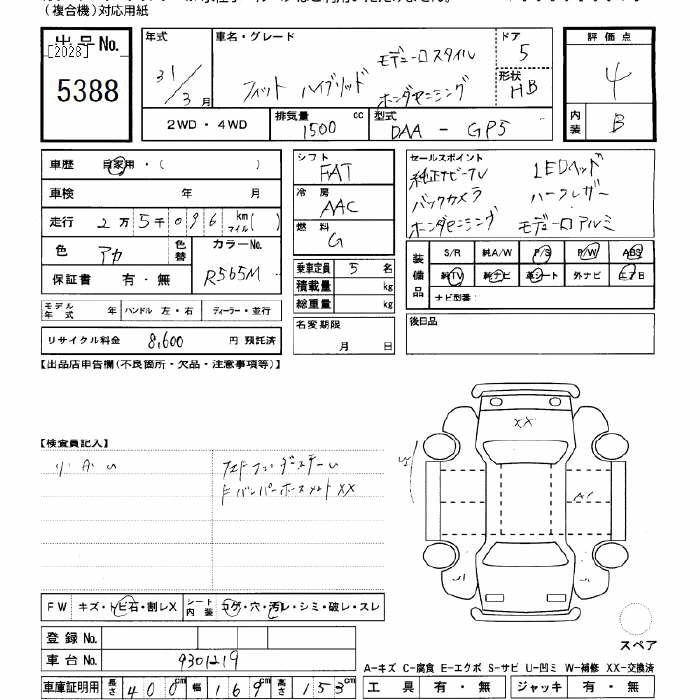 (複合機)対応用紙
出品No.
[2028]
5388
年式
31/3月
車名・グレード
フィット ハイブリッド
モデューロスタイル
ホンダセンシング
ドア
5
形状
HB
評価点
4
内装
B
2WD・4WD
排気量
1500 cc
型式
DAA - GP5
車歴 自家用・( )
車検 年 月
走行 2万5千096 km マイル( )
色 アカ
色替
カラーNo.
R565M
保証書 有・無
モデル年式 年 ハンドル 左・右 ディーラー・並行
リサイクル料金 8,600 円 預託済
シフト
FAT
冷房
AAC
燃料
G
乗車定員 5 名
積載量 kg
総重量 kg
名変期限
月 日
セールスポイント
純正ナビTV LEDヘッド
バックカメラ ハーフレザー
ホンダセンシング モデューロアルミ
装備品
S/R 純A/W P/S P/W ABS
純TV 純ナビ 革シート 外ナビ エアB
ナビ型番:
後日品
【出品店申告欄(不良箇所・欠品・注意事項等)】
【検査員記入】
XX
FW キズ・トビ石・割レX シート内装 コゲ・穴・汚レ・シミ・破レ・スレ
登録No.
車台No. 9301219
車庫証明用 長さ 400cm 幅 169cm 高さ 153cm
スペア
A-キズ C-腐食 E-エクボ S-サビ U-凹ミ W-補修 XX-交換済
工具 有・無 ジャッキ 有・無